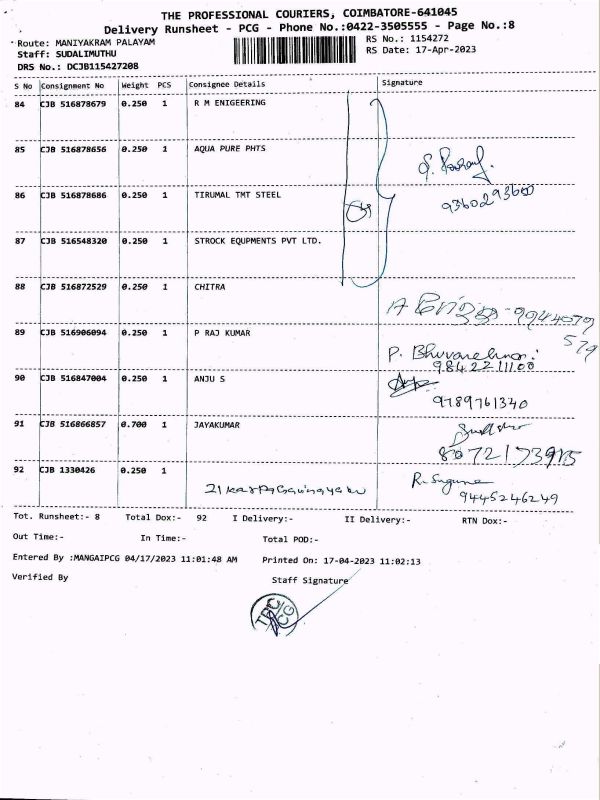 THE PROFESSIONAL COURIERS, COIMBATORE-641045
Delivery Runsheet - PCG - Phone No.:0422-3505555 - Page No.:8
Route: MANIYAKRAM PALAYAM RS No.: 1154272
Staff: SUDALIMUTHU RS Date: 17-Apr-2023
DRS No.: DCJB115427208
S No Consignment No Weight PCS Consignee Details Signature
84 CJB 516878679 0.250 1 R M ENIGEERING
85 CJB 516878656 0.250 1 AQUA PURE PHTS
86 CJB 516878686 0.250 1 TIRUMAL TMT STEEL
9360293600
87 CJB 516548320 0.250 1 STROCK EQUPMENTS PVT LTD.
88 CJB 516872529 0.250 1 CHITRA
9944079
579
89 CJB 516906094 0.250 1 P RAJ KUMAR
P. Bhuvaneshwari
9842211100
90 CJB 516847004 0.250 1 ANJU S
9789761340
91 CJB 516866857 0.700 1 JAYAKUMAR
8072173915
92 CJB 1330426 0.250 1
R. Suguna
9445246249
Tot. Runsheet:- 8 Total Dox:- 92 I Delivery:- II Delivery:- RTN Dox:-
Out Time:- In Time:- Total POD:-
Entered By :MANGAIPCG 04/17/2023 11:01:48 AM Printed On: 17-04-2023 11:02:13
Verified By Staff Signature